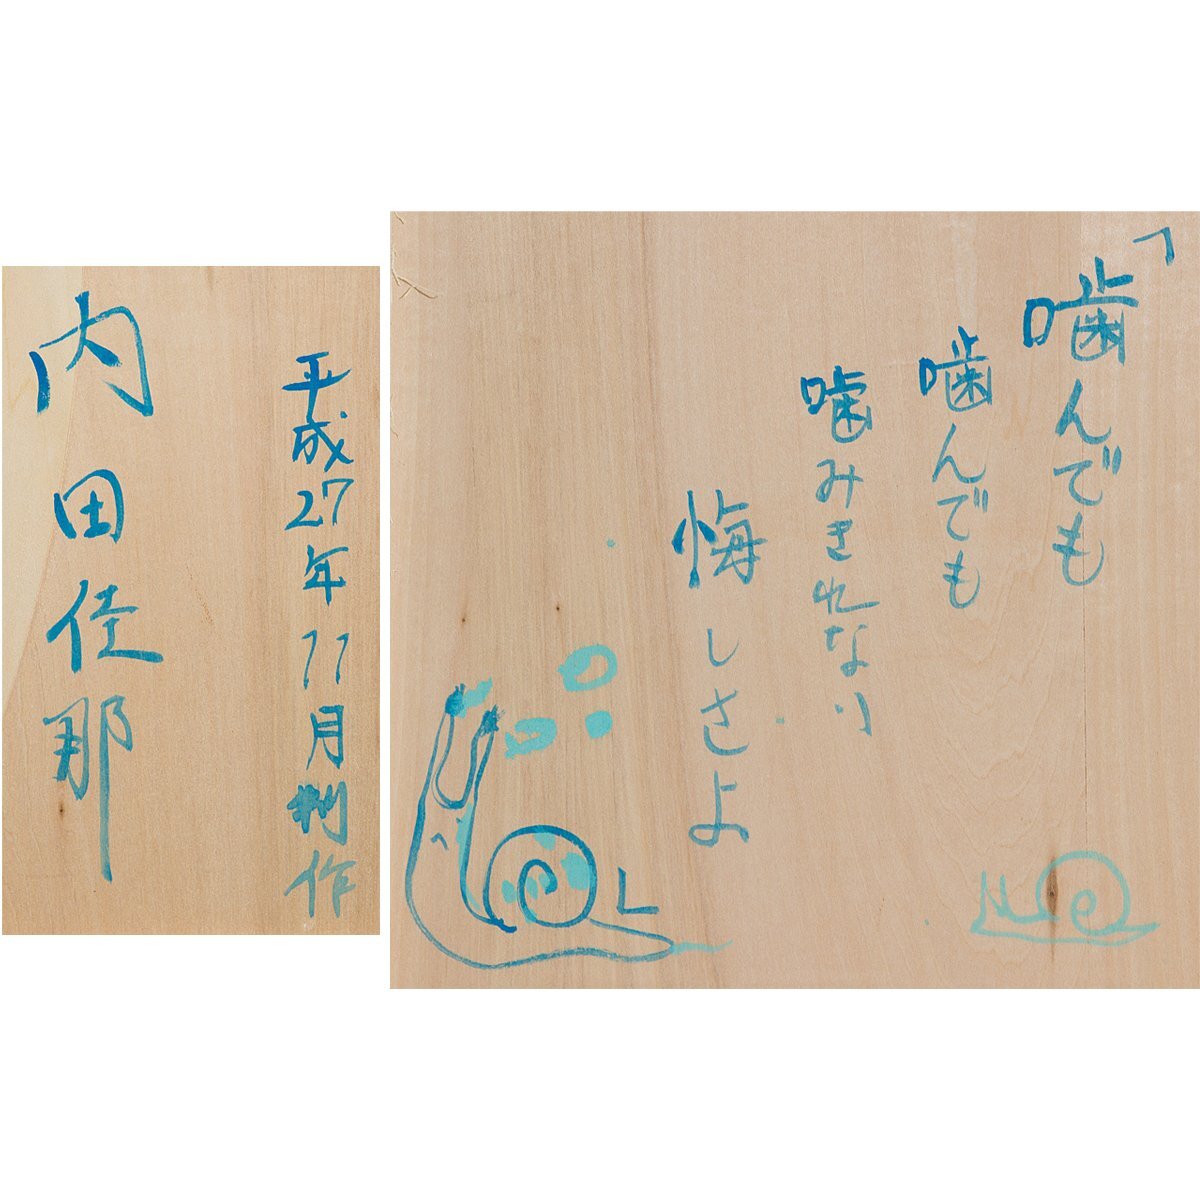 「噛んでも
噛んでも
噛みきれない
悔しさよ」
平成27年11月制作
内田佳那